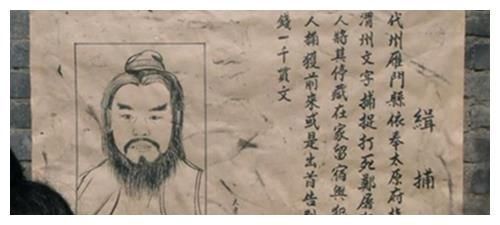 緝捕
代州雁門縣依奉太原府指
渭州文字捕捉打死鄭屠
人將其停藏在家留宿與犯
人捕獲前來或是出首告到
錢一千貫文